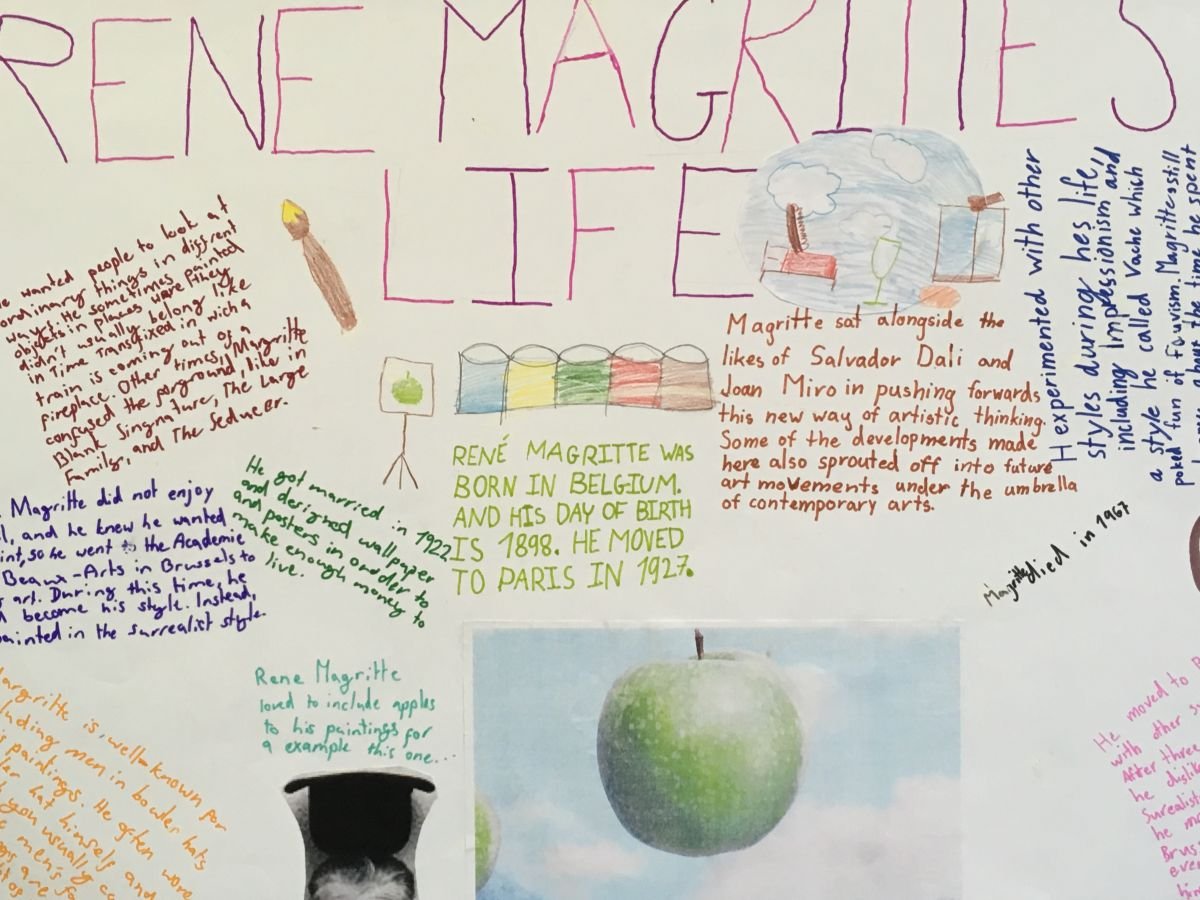 RENE MAGRITTES
LIFE
wanted people to look at
ordinary things in diffrent
ways. He sometimes painted
objects in places were they
didn't usually belong like
in Time Transfixed in wich a
train is coming out of a
fireplace. Other times, Magritte
confused the forground, like in
Blank Singnature, The Large
Family, and The Seducer.
Magritte did not enjoy
and he knew he wanted
so he went to the Academie
Beaux-Arts in Brussels to
art. During this time, he
become his style. Instead,
painted in the surrealist style.
He got married in 1922
and derigned wallpaper
and posters in oredder to
make enough money to
live.
RENÉ MAGRITTE WAS
BORN IN BELGIUM.
AND HIS DAY OF BIRTH
IS 1898. HE MOVED
TO PARIS IN 1927.
Magritte sat alongside the
likes of Salvador Dali and
Joan Miro in pushing forwards
this new way of artistic thinking.
Some of the developments made
here also sprouted off into future
art movements under the umbrella
of contemporary arts.
H experimented with other
styles during hes life,
including Impressionism and
a style he called Vache which
poked fun of fauvism. Magritte still
the time he spent
Magritte died in 1967
Rene Magritte
loved to include apples
to his paintings for
a example this one...
Margritte is well-known for
men in bowler hats
paintings. He often wore
hat himself and
you usually
men's
are
He moved to
with other
After three
he
he